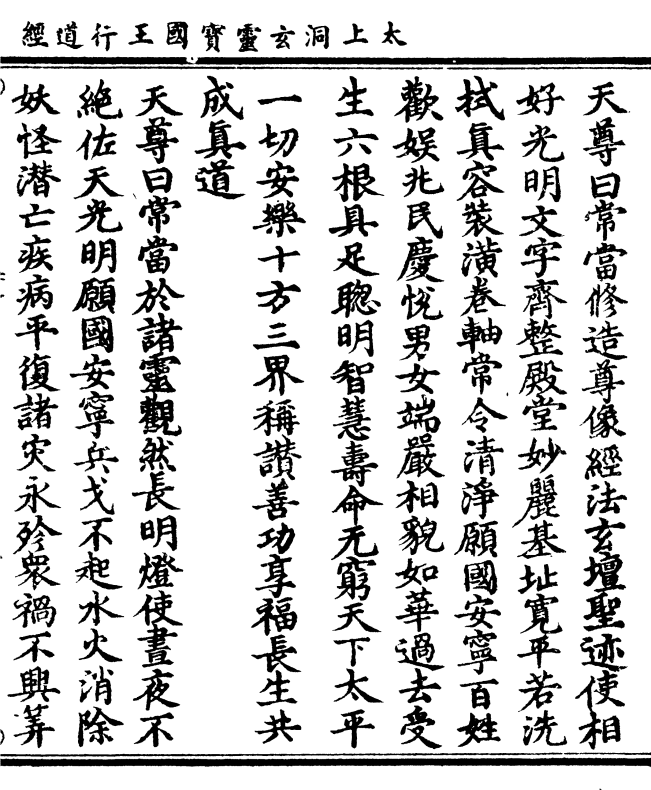 太上洞玄靈寶國王行道經
天尊曰常當修造尊像經法玄壇聖迹使相
好光明文字齊整殿堂妙麗基址寬平若洗
拭真容裝潢卷軸常令清淨願國安寧百姓
歡娛兆民慶悅男女端嚴相貌如華過去受
生六根具足聦明智慧壽命无窮天下太平
一切安樂十方三界稱讃善功享福長生共
成真道
天尊曰常當於諸靈觀然長明燈使晝夜不
絶佐天光明願國安寧兵戈不起水火消除
妖怪潜亡疾病平復諸灾永殄衆禍不興筭